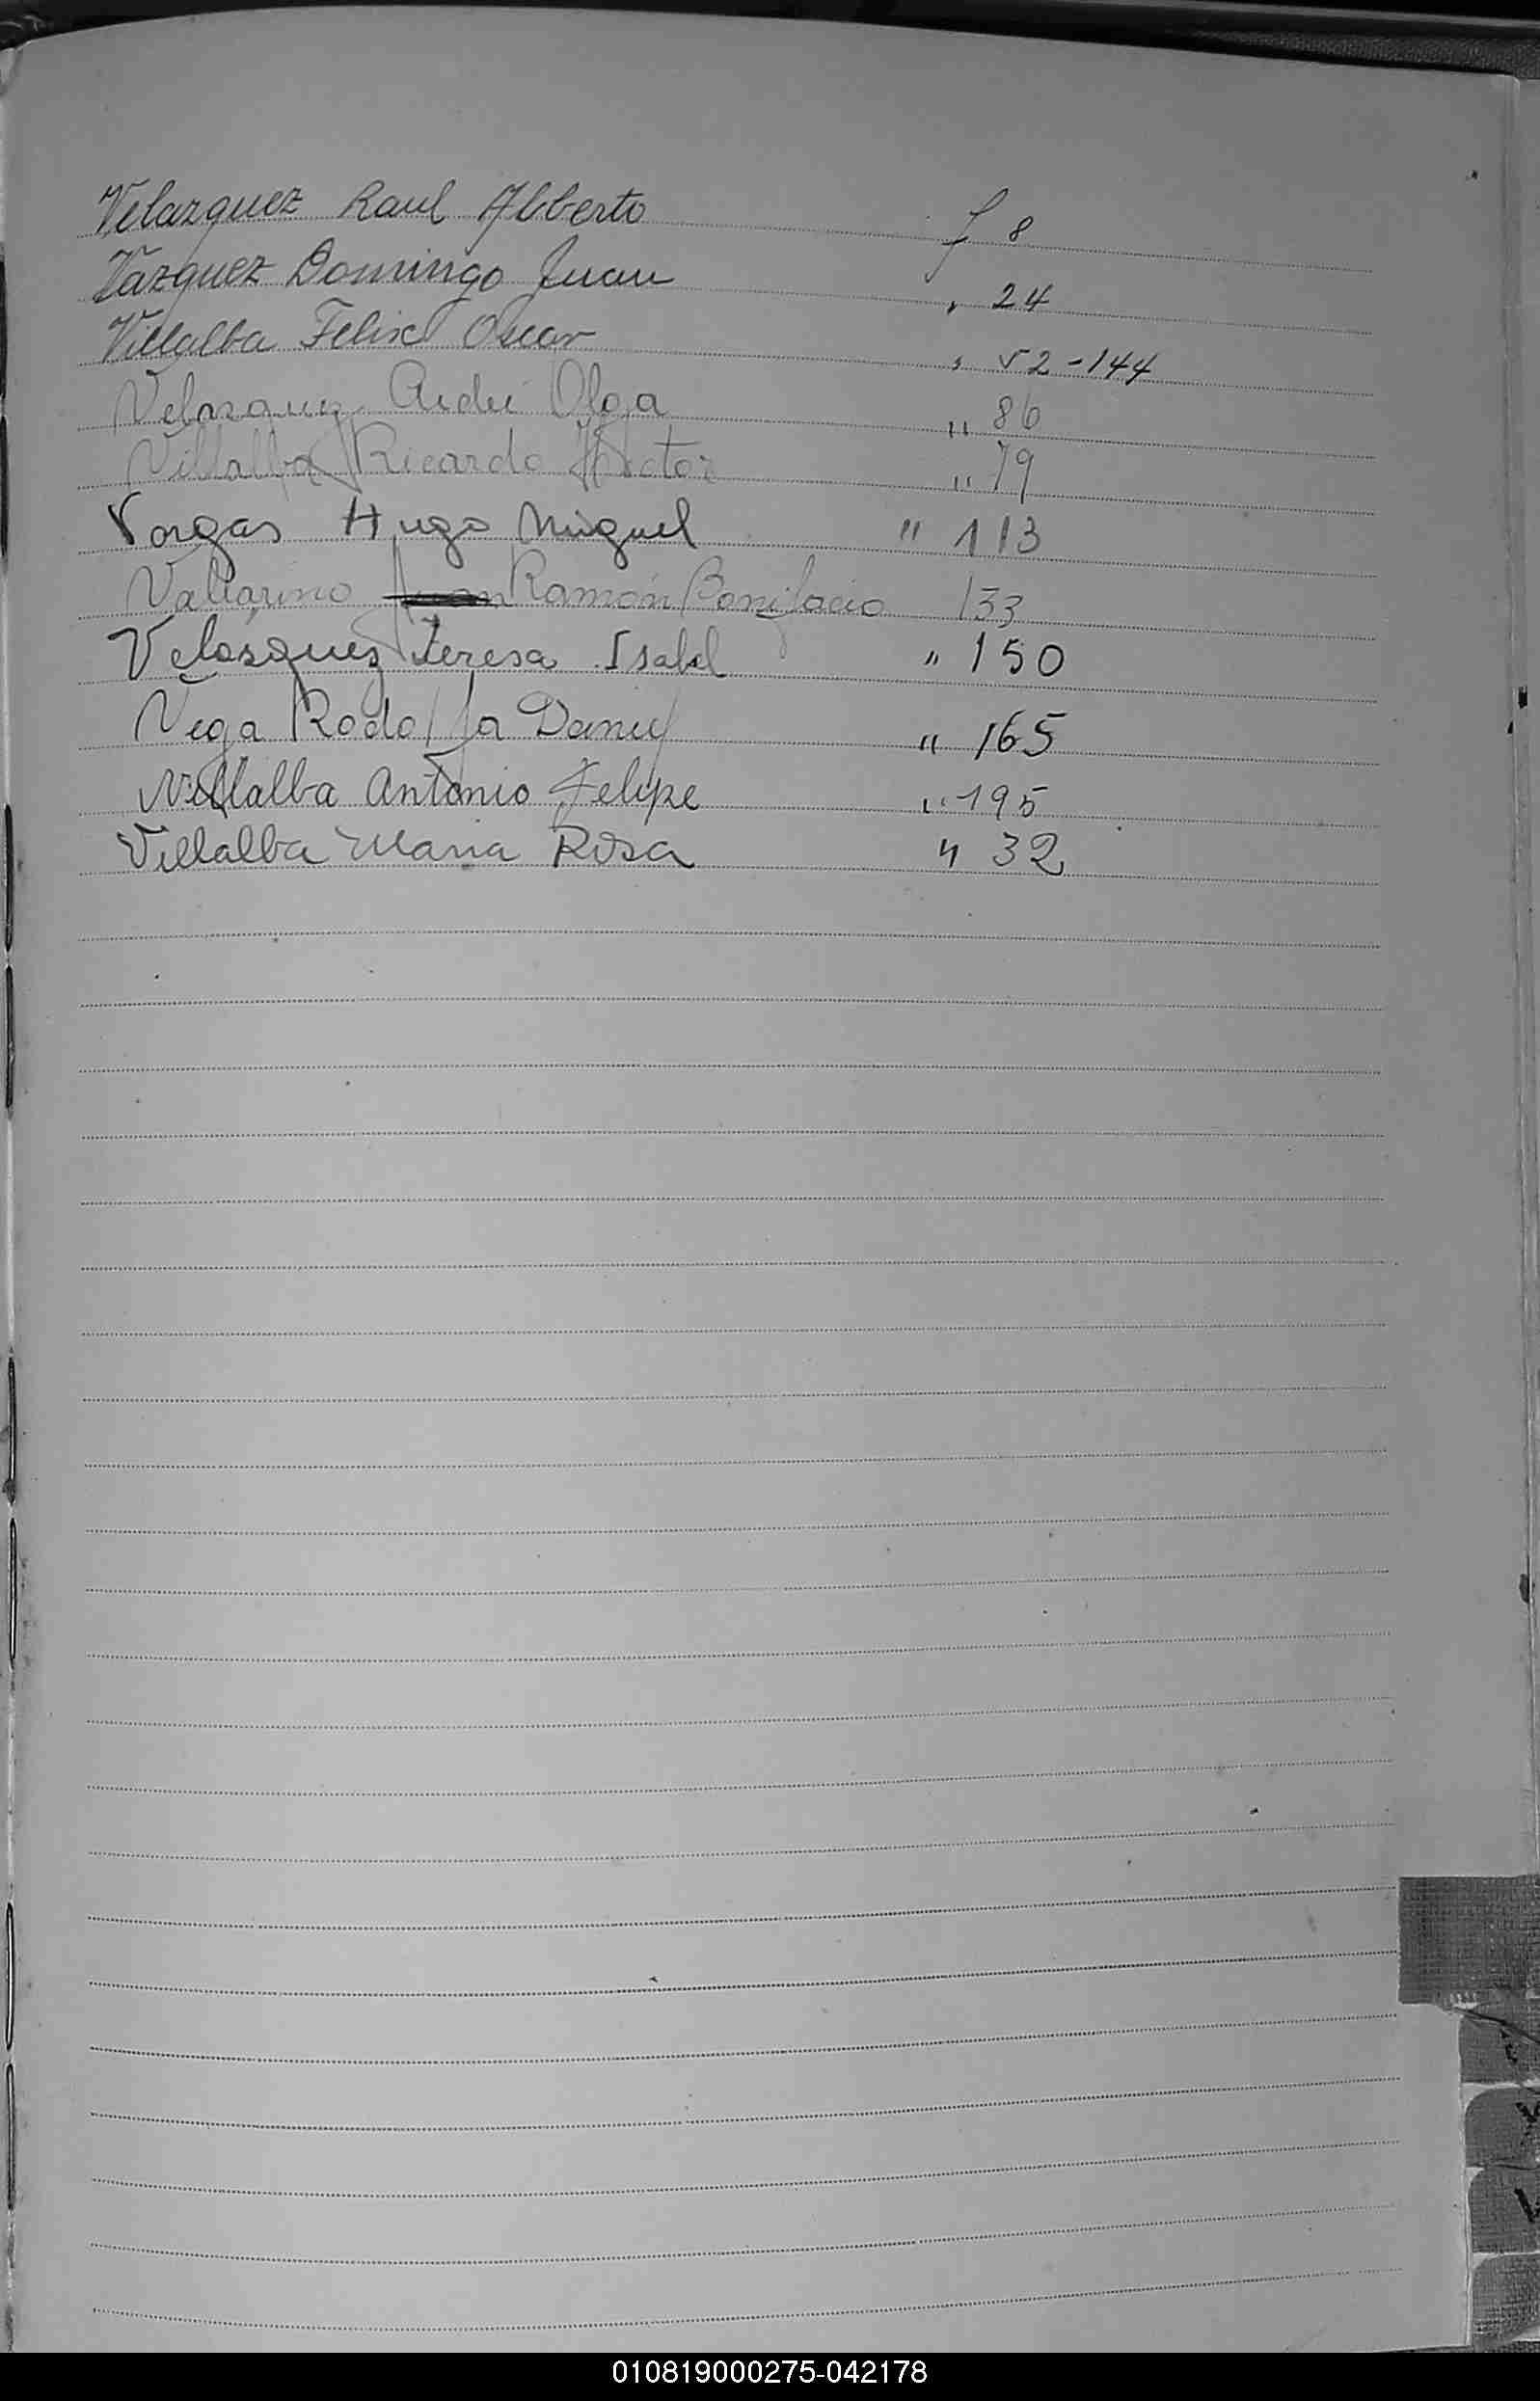 Velazquez Raul Alberto f 8
Vazquez Domingo Juan " 24
Villalba Felix Oscar " 52-144
Velazquez Aidée Olga " 86
Villalba Ricardo Hector " 79
Vargas Hugo Miguel " 113
Vallarino Juan Ramón Bonifacio 133
Velasquez Teresa Isabel " 150
Vega Rodolfo Daniel " 165
Villalba Antonio Felipe " 195
Villalba Maria Rosa " 32
010819000275-042178